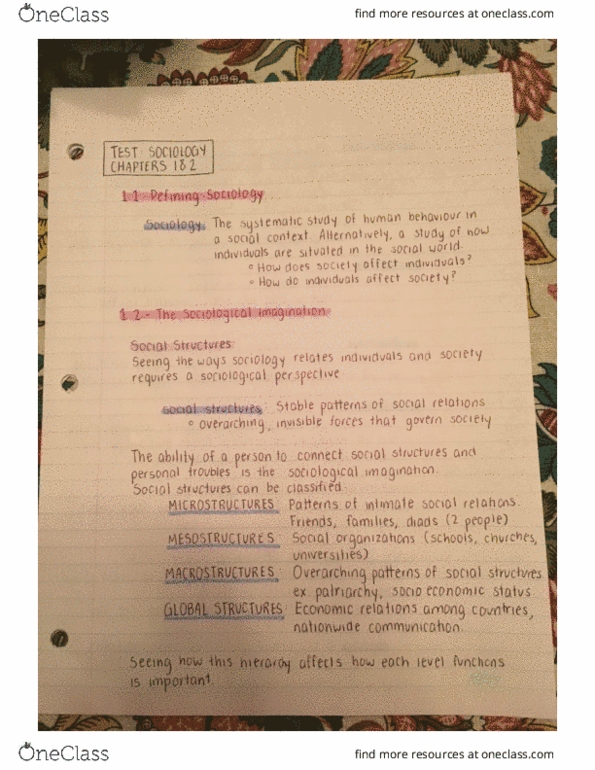 OneClass
find more resources at oneclass.com
TEST: SOCIOLOGY
CHAPTERS 1&2
1.1 - Defining Sociology
Sociology: The systematic study of human behaviour in
a social context. Alternatively, a study of how
individuals are situated in the social world.
◦ How does society affect individuals?
◦ How do individuals affect society?
1.2 - The Sociological Imagination
Social Structures:
Seeing the ways sociology relates individuals and society
requires a sociological perspective
Social structures: Stable patterns of social relations
◦ overarching, invisible forces that govern society
The ability of a person to connect social structures and
personal troubles is the sociological imagination.
Social structures can be classified:
MICROSTRUCTURES: Patterns of intimate social relations.
Friends, families, diads (2 people)
MESOSTRUCTURES: Social organizations (schools, churches,
universities)
MACROSTRUCTURES: Overarching patterns of social structures
ex. patriarchy, socioeconomic status
GLOBAL STRUCTURES: Economic relations among countries,
nationwide communication.
Seeing how this hierarchy affects how each level functions
is important.
OneClass
find more resources at oneclass.com